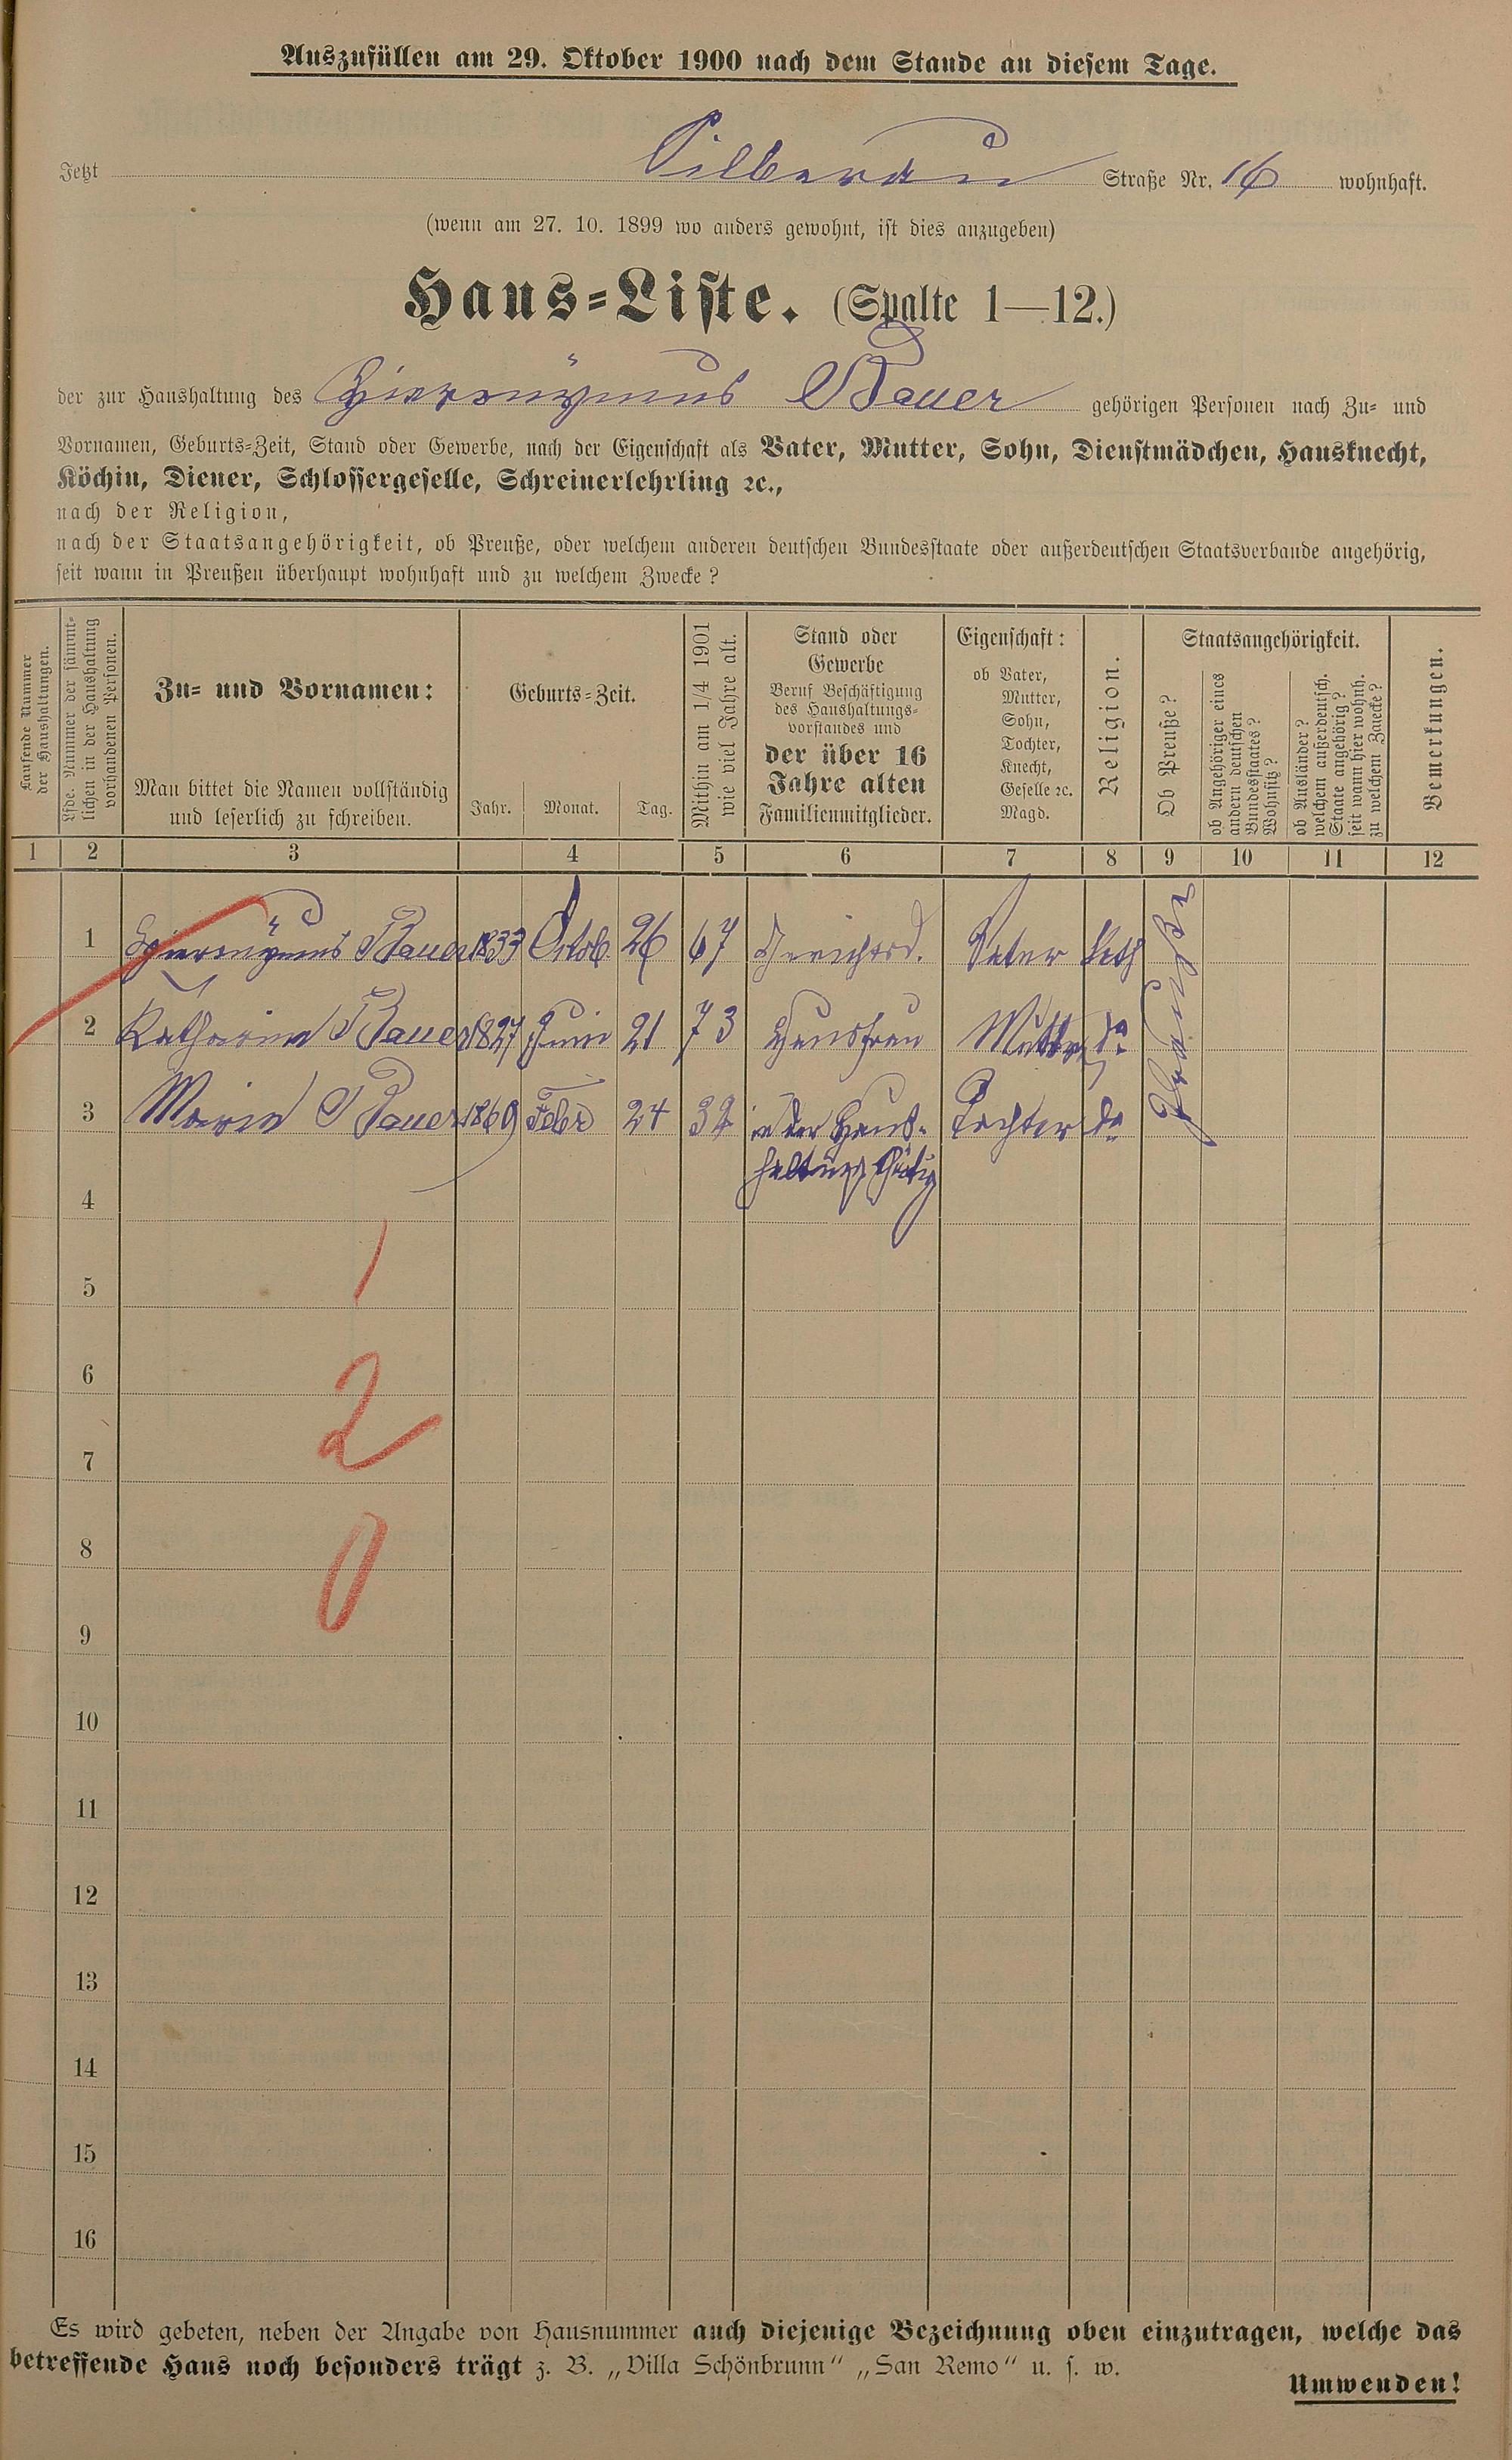 Auszufüllen am 29. Oktober 1900 nach dem Stande an diesem Tage.
Jetzt Silberau Straße Nr. 16 wohnhaft.
(wenn am 27. 10. 1899 wo anders gewohnt, ist dies anzugeben)
Haus=Liste. (Spalte 1—12.)
der zur Haushaltung des Hieronÿmus Bauer gehörigen Personen nach Zu= und
Vornamen, Geburts=Zeit, Stand oder Gewerbe, nach der Eigenschaft als Vater, Mutter, Sohn, Dienstmädchen, Hausknecht,
Köchin, Diener, Schlossergeselle, Schreinerlehrling ꝛc.,
nach der Religion,
nach der Staatsangehörigkeit, ob Preuße, oder welchem anderen deutschen Bundesstaate oder außerdeutschen Staatsverbande angehörig,
seit wann in Preußen überhaupt wohnhaft und zu welchem Zwecke?
Laufende Nummer
der Haushaltungen.
Lfde. Nummer der sämmt=
lichen in der Haushaltung
vorhandenen Personen.
Zu= und Vornamen:
Man bittet die Namen vollständig
und leserlich zu schreiben.
Geburts=Zeit.
Jahr. Monat. Tag.
Mithin am 1/4 1901
wie viel Jahre alt.
Stand oder
Gewerbe
Beruf Beschäftigung
des Haushaltungs=
vorstandes und
der über 16
Jahre alten
Familienmitglieder.
Eigenschaft:
ob Vater,
Mutter,
Sohn,
Tochter,
Knecht,
Geselle ꝛc.
Magd.
Religion.
Staatsangehörigkeit.
Ob Preuße?
ob Angehöriger eines
andern deutschen
Bundesstaates?
Wohnsitz?
ob Ausländer?
welchem außerdeutsch.
Staate angehörig?
seit wann hier wohnh.
zu welchem Zwecke?
Bemerkungen.
1 2 3 4 5 6 7 8 9 10 11 12
1 Hieronÿmus Bauer 1833 Octob. 26 67 Vater Kath
2 Katharina Bauer 1827 Juni 21 73 Hausfrau Mutter do
3 Maria Bauer 1869 Febr 24 32 in der Haus- Tochter do
haltung thätig
Preuße
4
1
5
6
2
7
8
0
9
10
11
12
13
14
15
16
Es wird gebeten, neben der Angabe von Hausnummer auch diejenige Bezeichnung oben einzutragen, welche das
betreffende Haus noch besonders trägt z. B. „Villa Schönbrunn“ „San Remo“ u. s. w.
Umwenden!